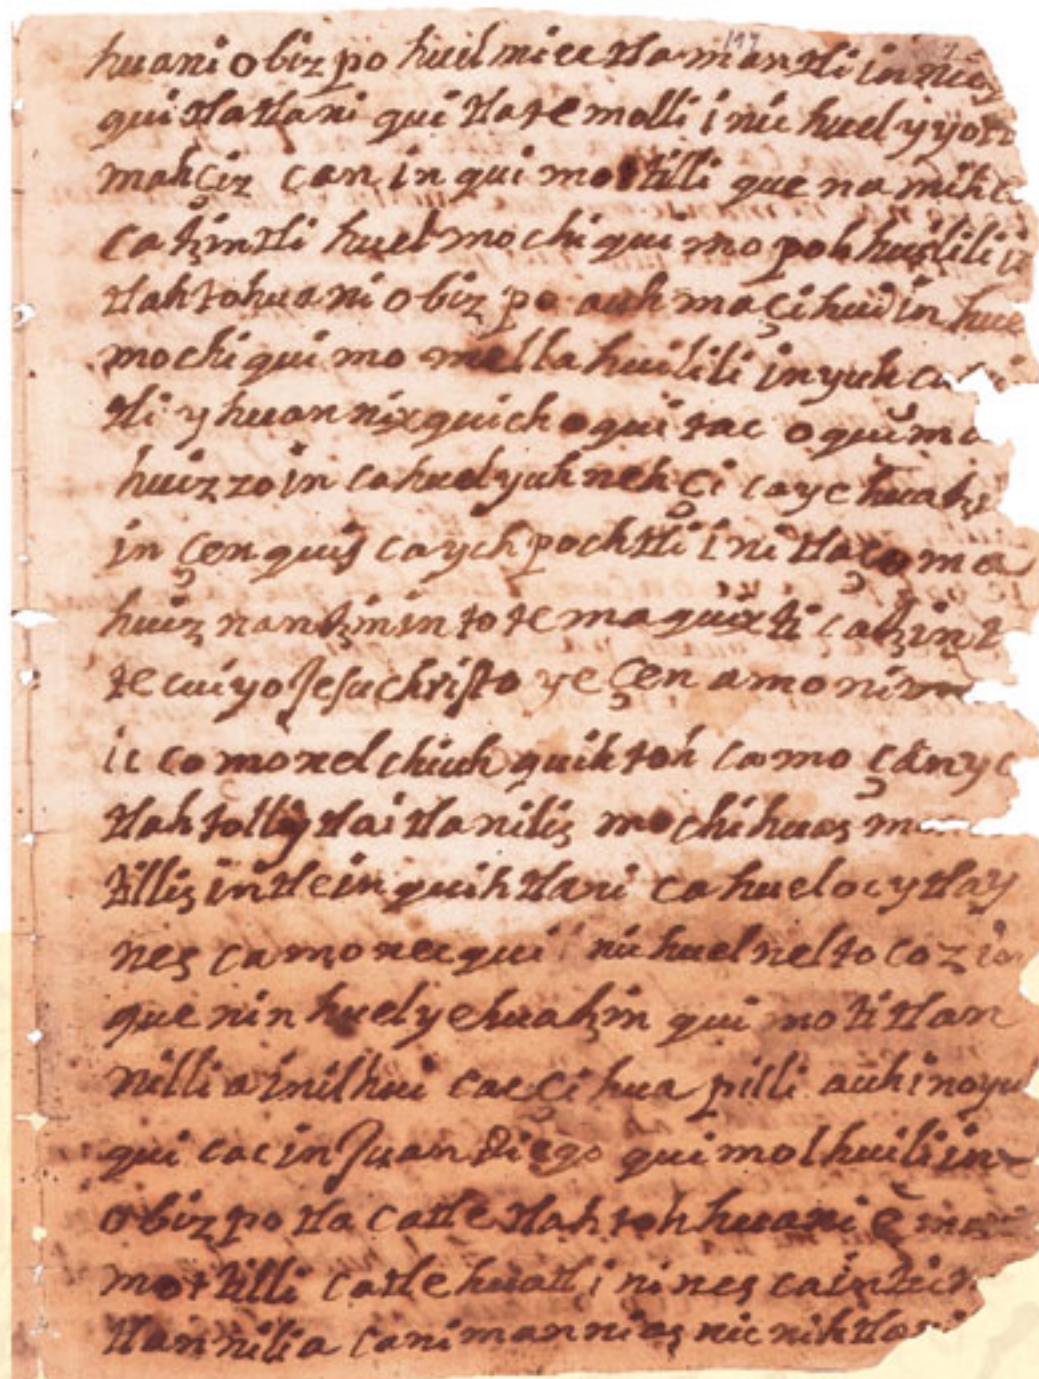 huani obizpo huel miec tlamantli inic
quitlatlani quitlatemolli inic huel yyoll
mahçiz can in quimottilli quenamihc
catzintli huel mochi quimopohhuililli in
tlahtohuani obizpo auh maçihui in huel
mochi quimomellahuililli in yuhca
tli yhuan nixquich oquittac oquima
huizzo in ca huel yuh neh çi ca yehuatzi
in çenquisca ychpochtli initlaçoma
huiznantzin in totemaquixticatzin t
tecuiyo Jesuchristo yeçen amo nima
ic comonelchiuh quihtoh camo çan yc
tlahtolly tlaitlanilis mochihuas m
tillis in tlein quihtlani ca huel oc ytlay
nes camonecqui inic huel neltocoz in
quenin huel yehuatzin quimotitlan
nilli a inilhuicac çihuapilli auh in oyuh
quicac in Juan Diego quimolhuili in
obizpo tlacatle tlahtohhuani e ma
mottilli catlehuatl in ines ca in tic
tlannilia ca niman nias nicnihtlani